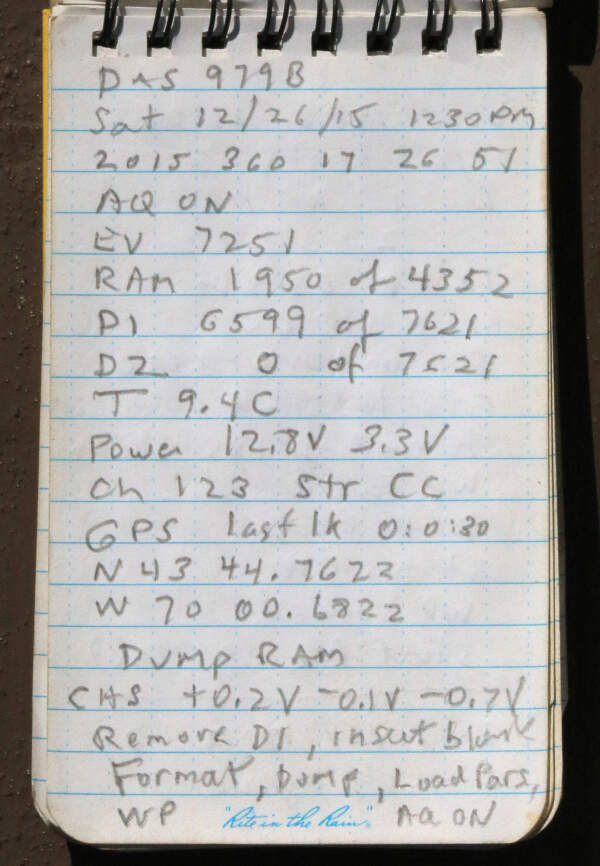 DAS 979B
Sat 12/26/15 1230PM
2015 360 17 26 51
AQ ON
EV 7251
RAM 1950 of 4352
D1 6599 of 7621
D2 0 of 7621
T 9.4C
Power 12.8V 3.3V
Ch 123 Str CC
GPS last lk 0:0:30
N 43 44.7622
W 70 00.6822
Dump RAM
CHS +0.2V -0.1V -0.7V
Remove D1, insert blank
Format, Dump, Load Pars,
WP "Rite in the Rain" AQ ON